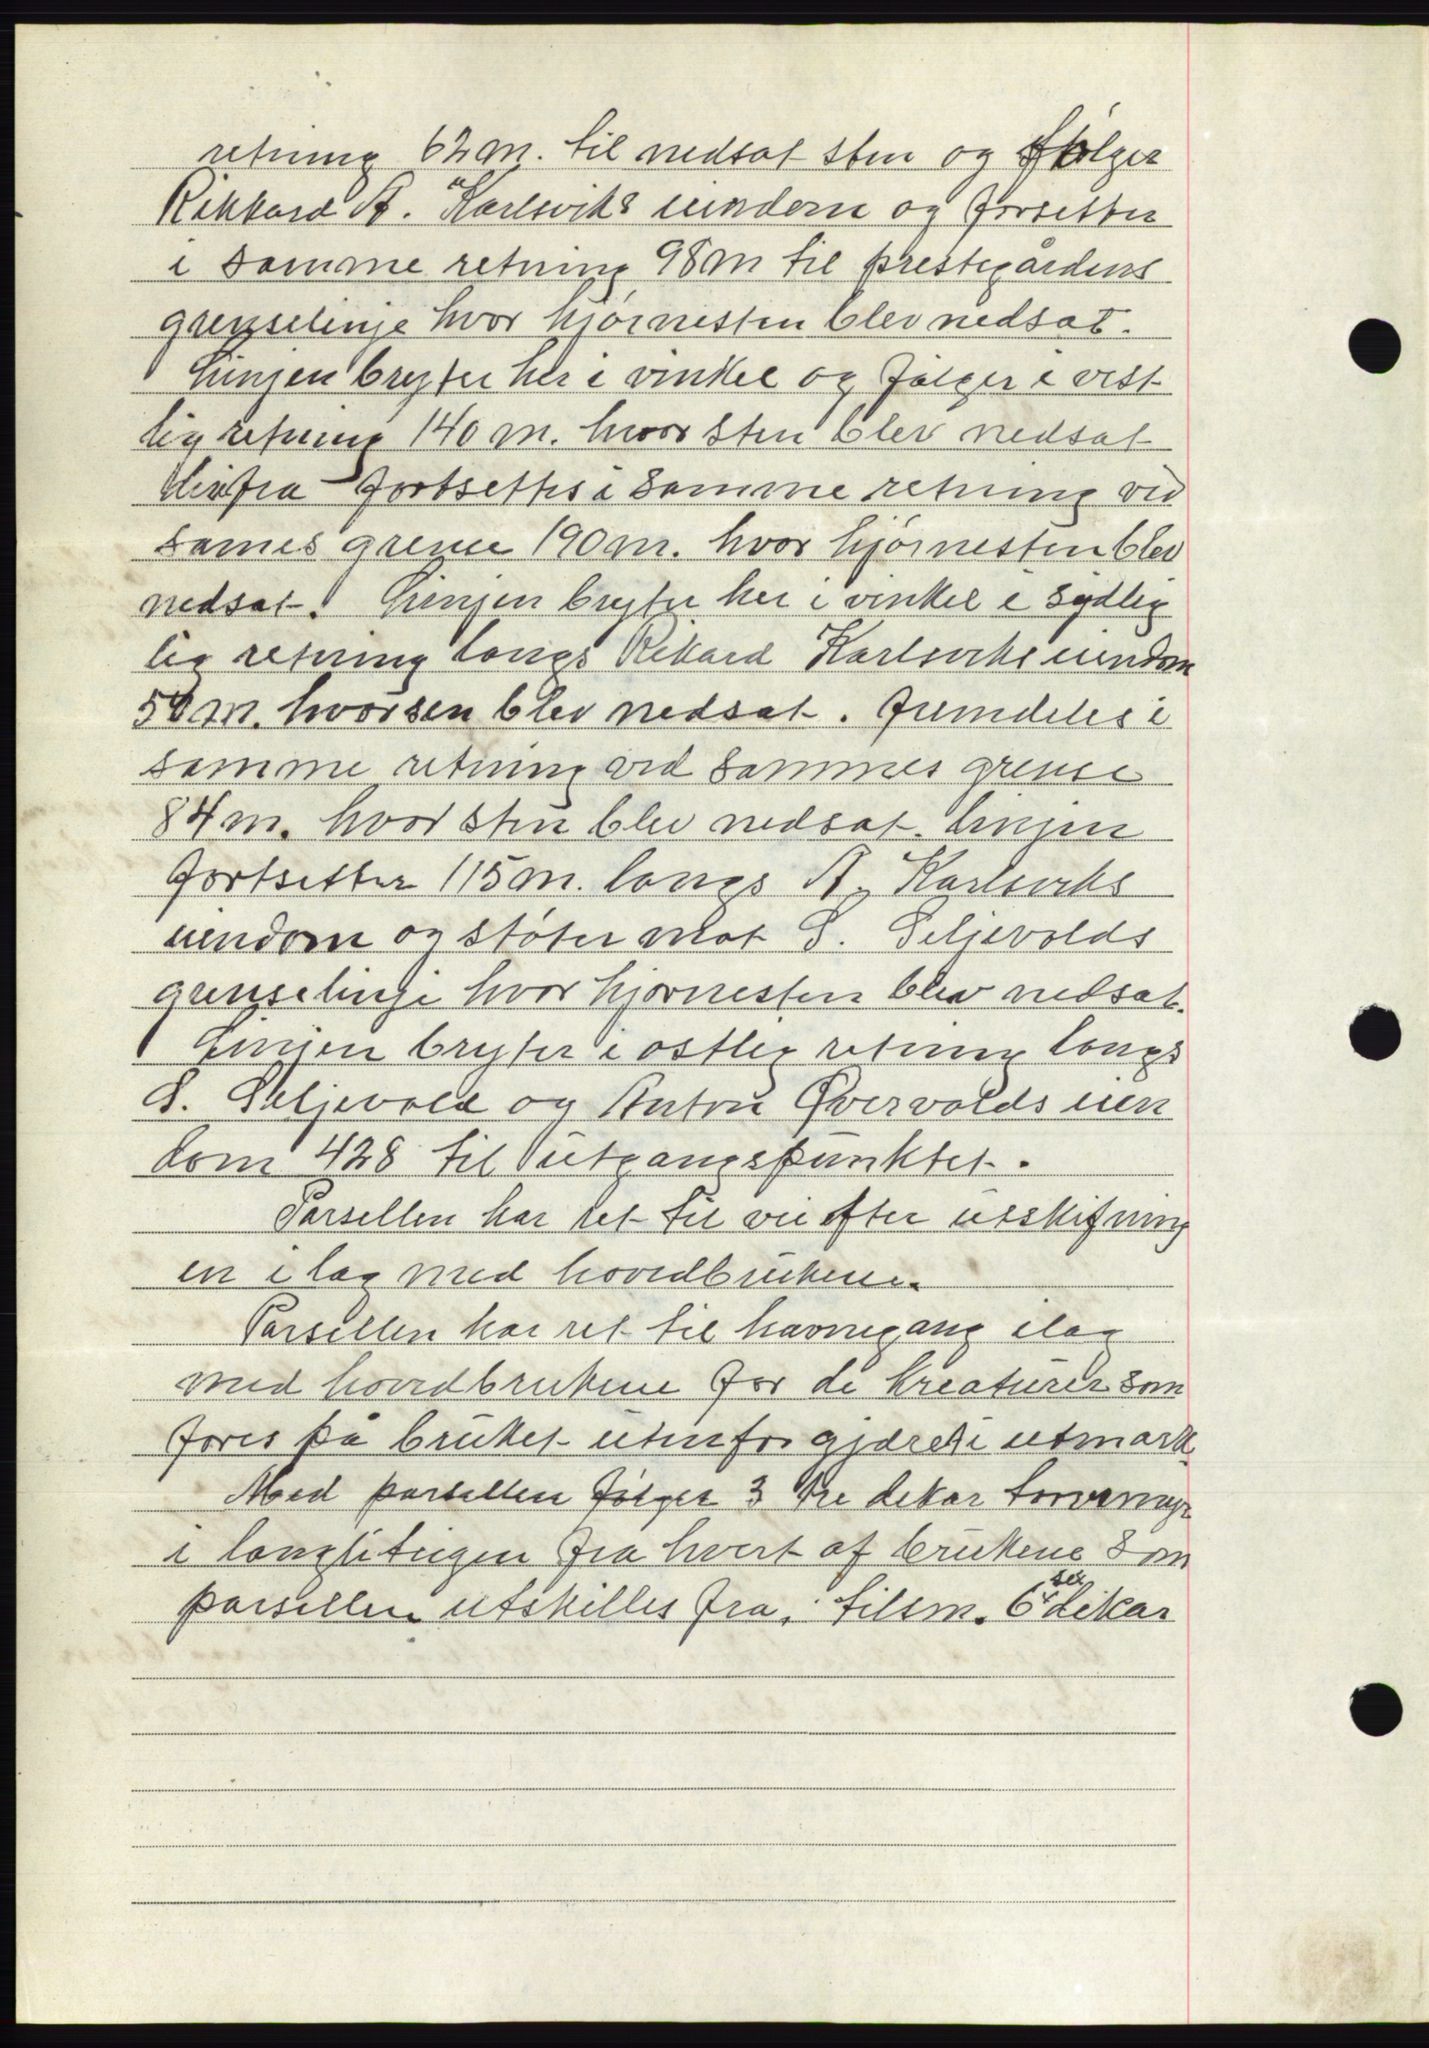 retning 62 m. til nedsat sten og følger
Rikkard A. Karlsviks eiendom og forsetter
i samme retning 98 m til prestegårdens
grenselinje hvor hjørnesten blev nedsat.
Linjen bryter her i vinkel og følger i vest
lig retning 140 m. hvor sten blev nedsat
herfra fortsettes i samme retning ved
sames grense 190 m. hvor hjørnesten blev
nedsat. Linjen bryter her i vinkel i sydlig
lig retning langs Rikard Karlsviks eiendom
m. hvor sen blev nedsat. fremdeles i
samme retning ved sammes grense
84 m. hvor sten blev nedsat. Linjen
fortsetter 115 m. langs A. Karlsviks
eiendom og støter mot S. Seljevolds
grenselinje hvor hjørnesten blev nedsat.
Linjen bryter i østlig retning langs
S. Seljevold og Anton Øvervolds eien
dom 428 til utgangspunktet.
Parsellen har ret til vei efter utskifning
en i lag med hovedbrukene.
Parsellen har ret til havnegang ilag
med hovedbrukene for de kreaturer som
fores på bruket utenfor gjæret i utmark.
Med parsellen følger 3 tre dekar torvmyr
i fra hvert af brukene som
parsellen utskilles fra, tilsm. 6 sex dekar